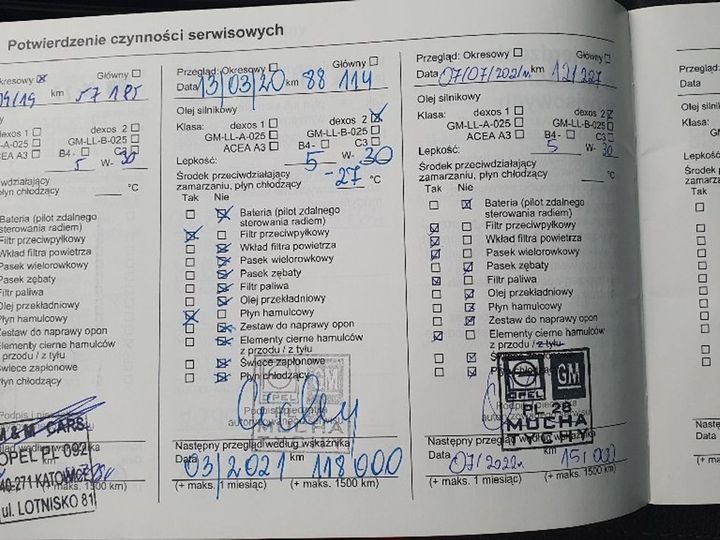 Potwierdzenie czynności serwisowych
kresowy ☒ Główny ☐
04/19 km 57 185
dexos 1 ☐ dexos 2 ☐
-LL-A-025 ☐ GM-LL-B-025 ☐
CEA A3 ☐ B4- ☐ C3 ☐
5 W- 30
ciwdziałający
płyn chłodzący °C
Nie
Bateria (pilot zdalnego
sterowania radiem)
Filtr przeciwpyłkowy
Wkład filtra powietrza
Pasek wielorowkowy
Pasek zębaty
Filtr paliwa
Olej przekładniowy
Płyn hamulcowy
Zestaw do naprawy opon
Elementy cierne hamulców
z przodu / z tyłu
Świece zapłonowe
Płyn chłodzący
M & M CARS
OPEL PL 092
40-271 KATOWICE
ul. LOTNISKO 81
(+ maks. 1500 km)
Przegląd: Okresowy ☐ Główny ☐
Data 13/03/20 km 88 114
Olej silnikowy
Klasa: dexos 1 ☐ dexos 2 ☒
GM-LL-A-025 ☐ GM-LL-B-025 ☐
ACEA A3 ☐ B4- ☐ C3 ☐
Lepkość: 5 W- 30
Środek przeciwdziałający
zamarzaniu, płyn chłodzący -27 °C
Tak Nie
☐ ☒ Bateria (pilot zdalnego
sterowania radiem)
☒ ☐ Filtr przeciwpyłkowy
☐ ☒ Wkład filtra powietrza
☐ ☒ Pasek wielorowkowy
☐ ☒ Pasek zębaty
☐ ☒ Filtr paliwa
☐ ☒ Olej przekładniowy
☒ ☐ Płyn hamulcowy
☐ ☒ Zestaw do naprawy opon
☐ ☒ Elementy cierne hamulców
z przodu / z tyłu
☐ ☒ Świece zapłonowe
☐ ☒ Płyn chłodzący
Podpis i pieczątka
Następny przegląd według wskaźnika
Data 03/2021 118 000
(+ maks. 1 miesiąc) (+ maks. 1500 km)
Przegląd: Okresowy ☐ Główny ☐
Data 07/07/2021r. km 121 227
Olej silnikowy
Klasa: dexos 1 ☐ dexos 2 ☒
GM-LL-A-025 ☐ GM-LL-B-025 ☐
ACEA A3 ☐ B4- ☐ C3 ☐
Lepkość: 5 W- 30
Środek przeciwdziałający
zamarzaniu, płyn chłodzący °C
Tak Nie
☐ ☒ Bateria (pilot zdalnego
sterowania radiem)
☒ ☐ Filtr przeciwpyłkowy
☒ ☐ Wkład filtra powietrza
☒ ☐ Pasek wielorowkowy
☐ ☒ Pasek zębaty
☒ ☐ Filtr paliwa
☐ ☒ Olej przekładniowy
☐ ☒ Płyn hamulcowy
☐ ☒ Zestaw do naprawy opon
☒ ☐ Elementy cierne hamulców
z przodu / z tyłu
☐ ☒
☐ ☒
OPEL GM
PL 28
MUCHA
Następny przegląd według wskaźnika
Data 07/2022r.
(+ maks. 1 miesiąc) (+ maks. 1500 km)
Data
Olej silnikowy
Klasa:
Lepkość:
Środek
zamarzaniu
Tak
Następny
Data
(+ maks.